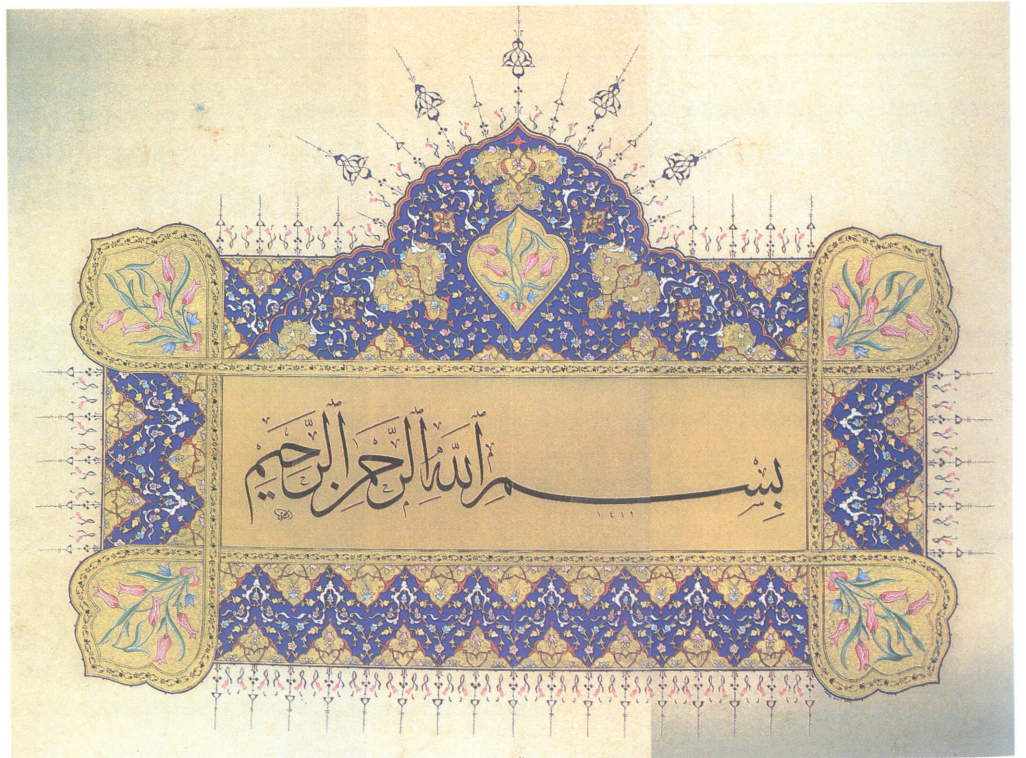 بِسْمِ ٱللَّهِ ٱلرَّحْمَٰنِ ٱلرَّحِيمِ
١٤١٢